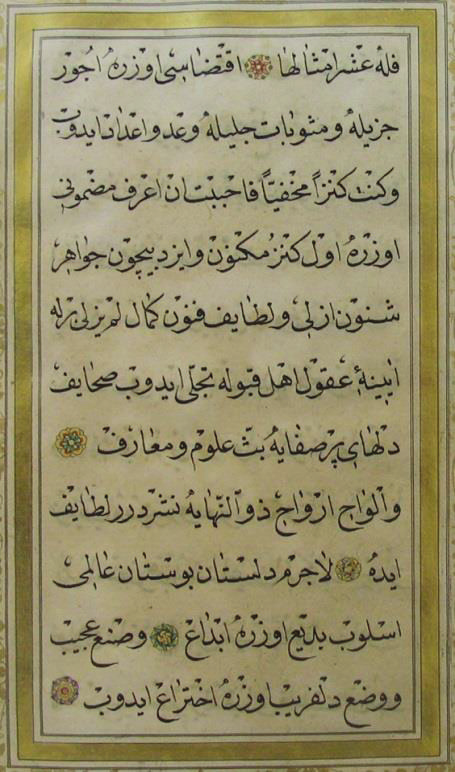 فله عشر امثالها اقتضاسى اوزره اجور
جزيله ومثوبات جليله وعد واعداد ايدوب
وكنت كنزاً مخفيّاً فاحببت ان اعرف مضمونى
اوزره اول كنز مكنون وايزد بيچون جواهر
شئون ازلى ولطايف فنون كمال لم يزلى برله
آيينهٔ عقول اهل قبوله تجلى ايدوب صحايف
دلهاى پر صفايه بثّ علوم ومعارف
والواح ارواح ذو النهايه نشر درر لطايف
ايده لاجرم دلستان بوستان عالمى
اسلوب بديع اوزره ابداع وصنع عجيب
ووضع دلفريب اوزره اختراع ايدوب